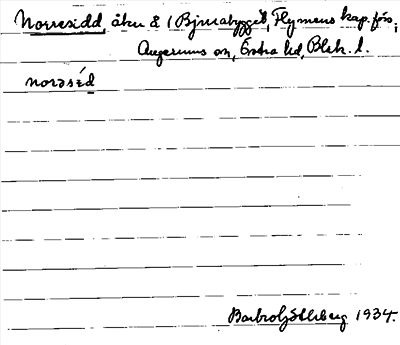 Norresidd åker 8 (Bjurabygget, Flymens kap. förs;
Augerums sn, Östra hd, Blek. l.
norəsìd
1934.